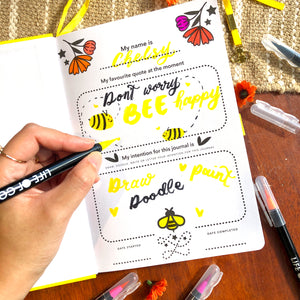 My name is
Chelsy
My favourite quote at the moment
Dont worry
BEE happy
My intention for this journal is
Draw Paint
Doodle
DATE STARTED DATE COMPLETED
LIFE OF CO
LIFE